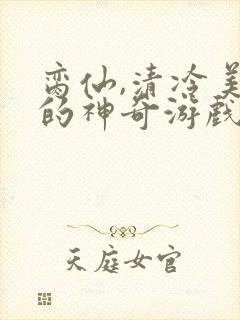 恋仙,清冷美
的神奇游戏
天庭女官